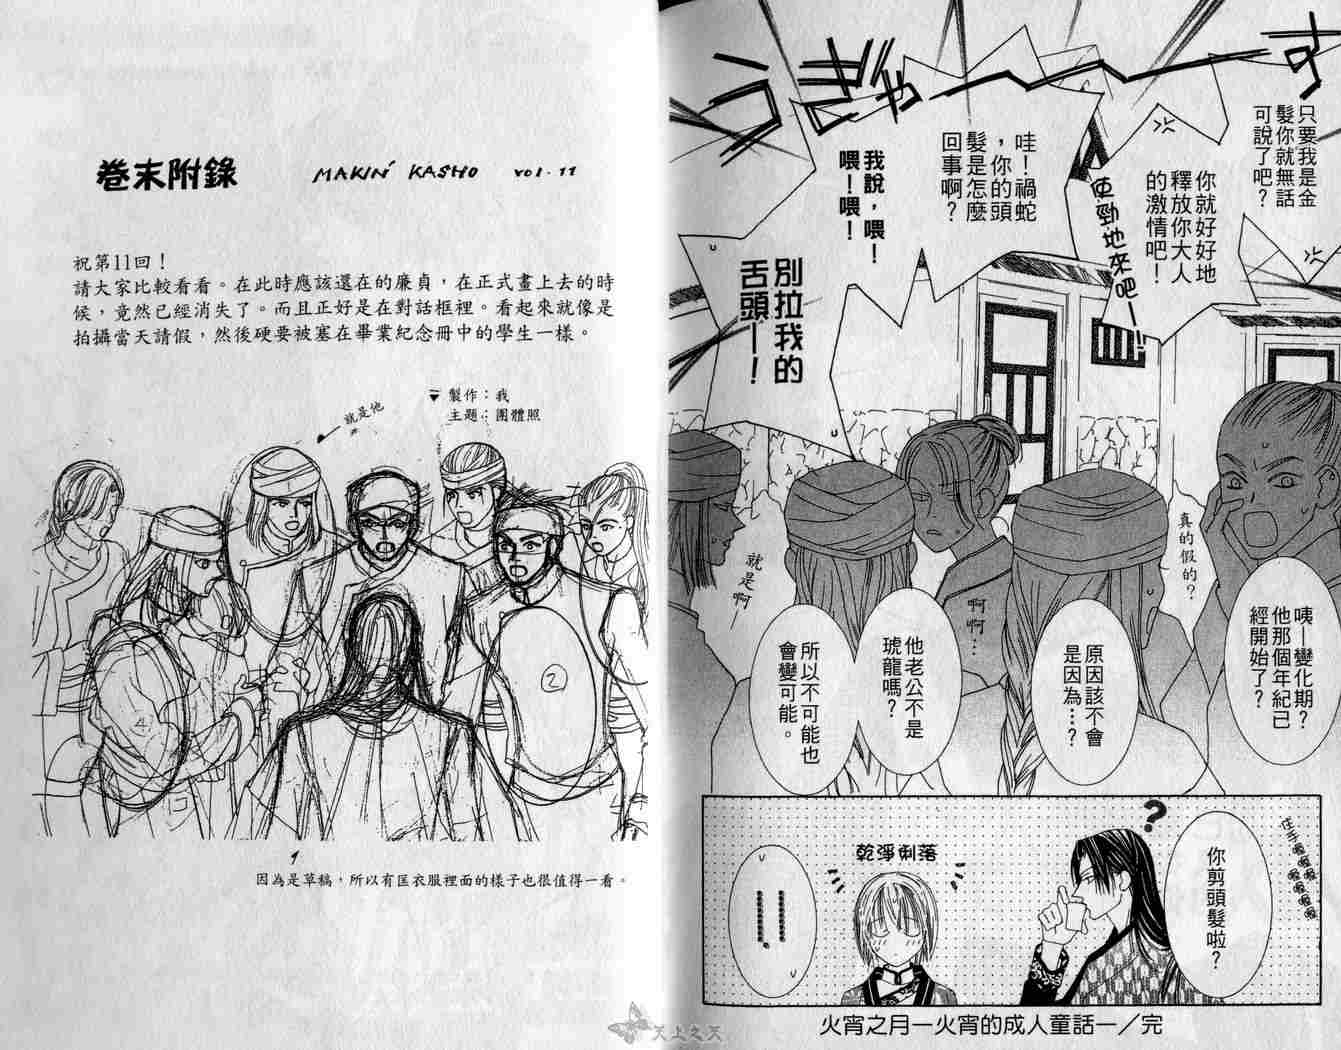 うぎゃーーーす
只要我是金
髮你就無話
可說了吧？
你就好好地
釋放你大人
的激情吧！
使勁地來吧ー!!
哇！禍蛇
，你的頭
髮是怎麼
回事啊？
我說，喂！
喂！喂！
別拉我的
舌頭ー！
真的假的？
咦ー變化期？
他那個年紀已
經開始了？
原因該不會
是因為…？
啊啊…
他老公不是
琥龍嗎？
就是啊
所以不可能也
會變可能。
你剪頭髮啦？
？
乾淨俐落
火宵之月—火宵的成人童話—／完
卷末附錄
MAKIN' KASHO vol.11
祝第11回！
請大家比較看看。在此時應該還在的廉貞，在正式畫上去的時
候，竟然已經消失了。而且正好是在對話框裡。看起來就像是
拍攝當天請假，然後硬要被塞在畢業紀念冊中的學生一樣。
製作：我
主題：團體照
就是他
②
4
1
因為是草稿，所以有匡衣服裡面的樣子也很值得一看。
天上之天